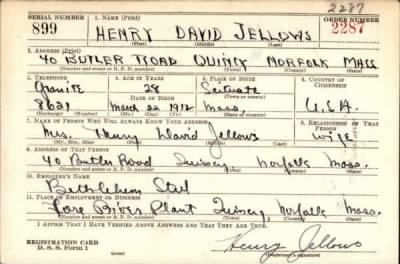 2287
SERIAL NUMBER 1. NAME (Print) ORDER NUMBER
899 HENRY DAVID JELLOWS 2287
(First) (Middle) (Last)
2. ADDRESS (Print)
40 BUTLER ROAD QUINCY NORFOLK MASS
(Number and street or R. F. D. number) (Town) (County) (State)
3. TELEPHONE 4. AGE IN YEARS 5. PLACE OF BIRTH 6. COUNTRY OF CITIZENSHIP
Granite 28 Scituate
DATE OF BIRTH (Town or county)
8621 March 22 1912 Mass. U.S.A.
(Mo.) (Day) (Yr.) (State or country)
7. NAME OF PERSON WHO WILL ALWAYS KNOW YOUR ADDRESS 8. RELATIONSHIP OF THAT PERSON
Mrs. Henry David Jellows wife
(Mr., Mrs., Miss) (First) (Middle) (Last)
9. ADDRESS OF THAT PERSON
40 Butler Road Quincy Norfolk Mass.
(Number and street or R. F. D. number) (Town) (County) (State)
10. EMPLOYER'S NAME
Bethlehem Steel
11. PLACE OF EMPLOYMENT OR BUSINESS
Fore River Plant Quincy, Norfolk Mass.
(Number and street or R. F. D. number) (Town) (County) (State)
I AFFIRM THAT I HAVE VERIFIED ABOVE ANSWERS AND THAT THEY ARE TRUE.
REGISTRATION CARD
D. S. S. Form 1 Henry Jellows
(Registrant's signature)